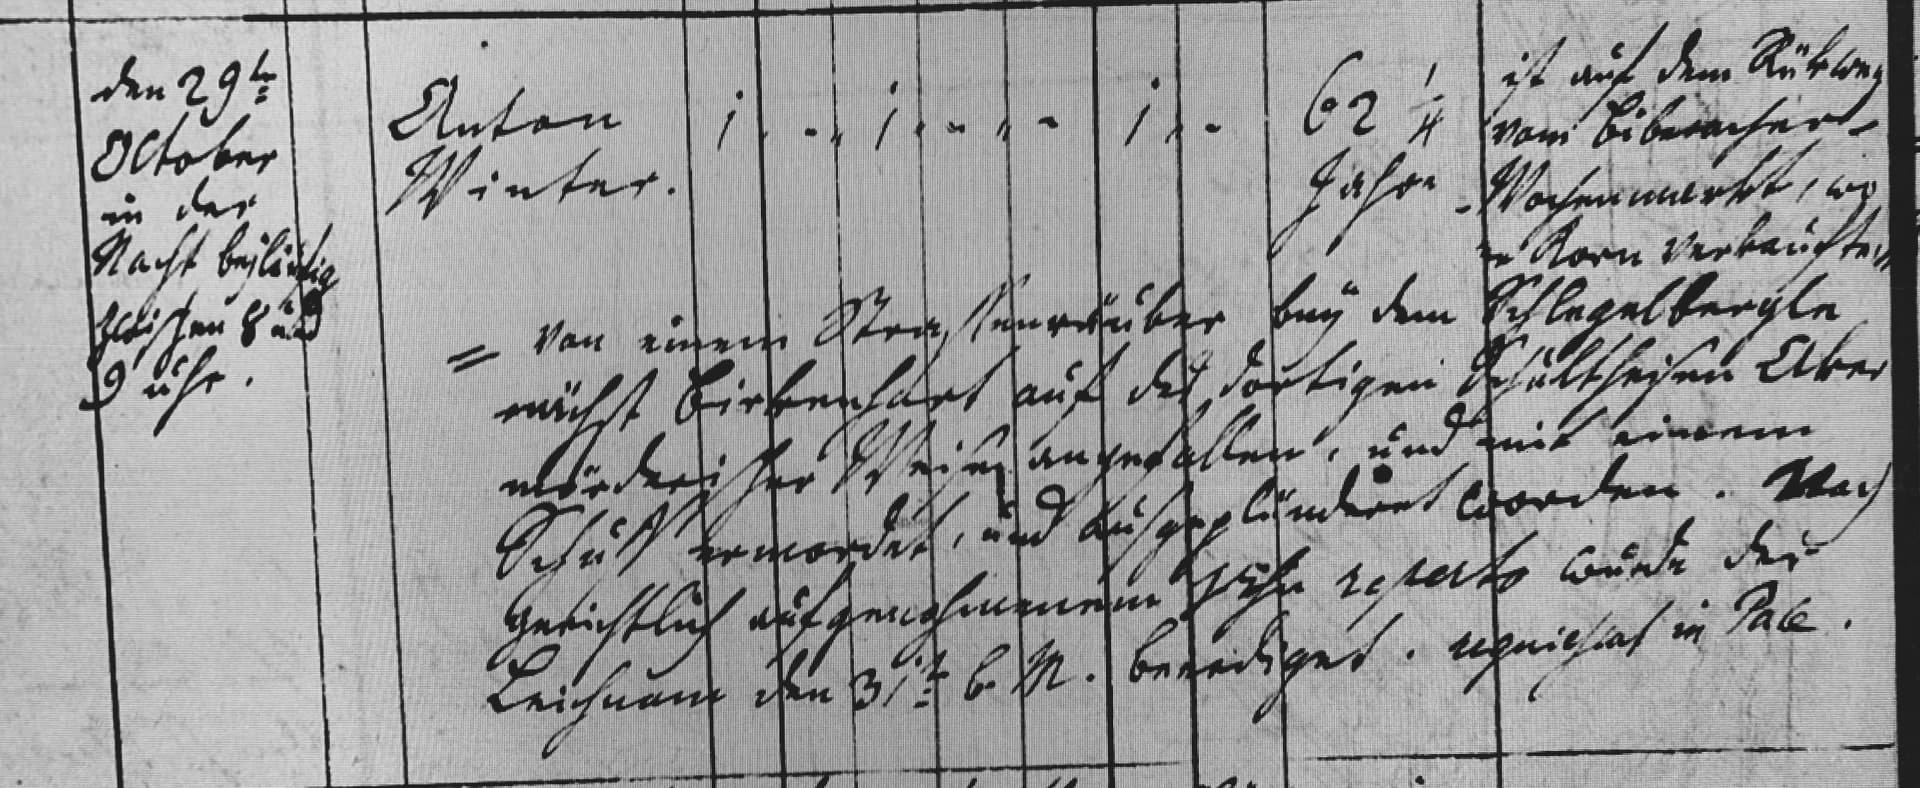 den 29te
October
in der
Nacht beyläufig
zwischen 8 und
9 uhr.
Anton
Winter.
1 . - „ 1 „ - „ - 1 „ -
62 1/4
Jahr
ist auf dem Rükweg
vom Biberacher
Wochenmarkt, wo
er Korn verkaufte,
= von einem Straßenräuber bey dem Schlegelbergle
nächst Birkenhart auf des dortigen Schultheisen Aker
mörderischer Weise angefallen, und mit einem
Schuß ermordet, und ausgeplündert worden. Nach
gerichtlich aufgenohmenem reperto wurde der
Leichnam den 31te b. M. beerdiget. requiescat in Pace.